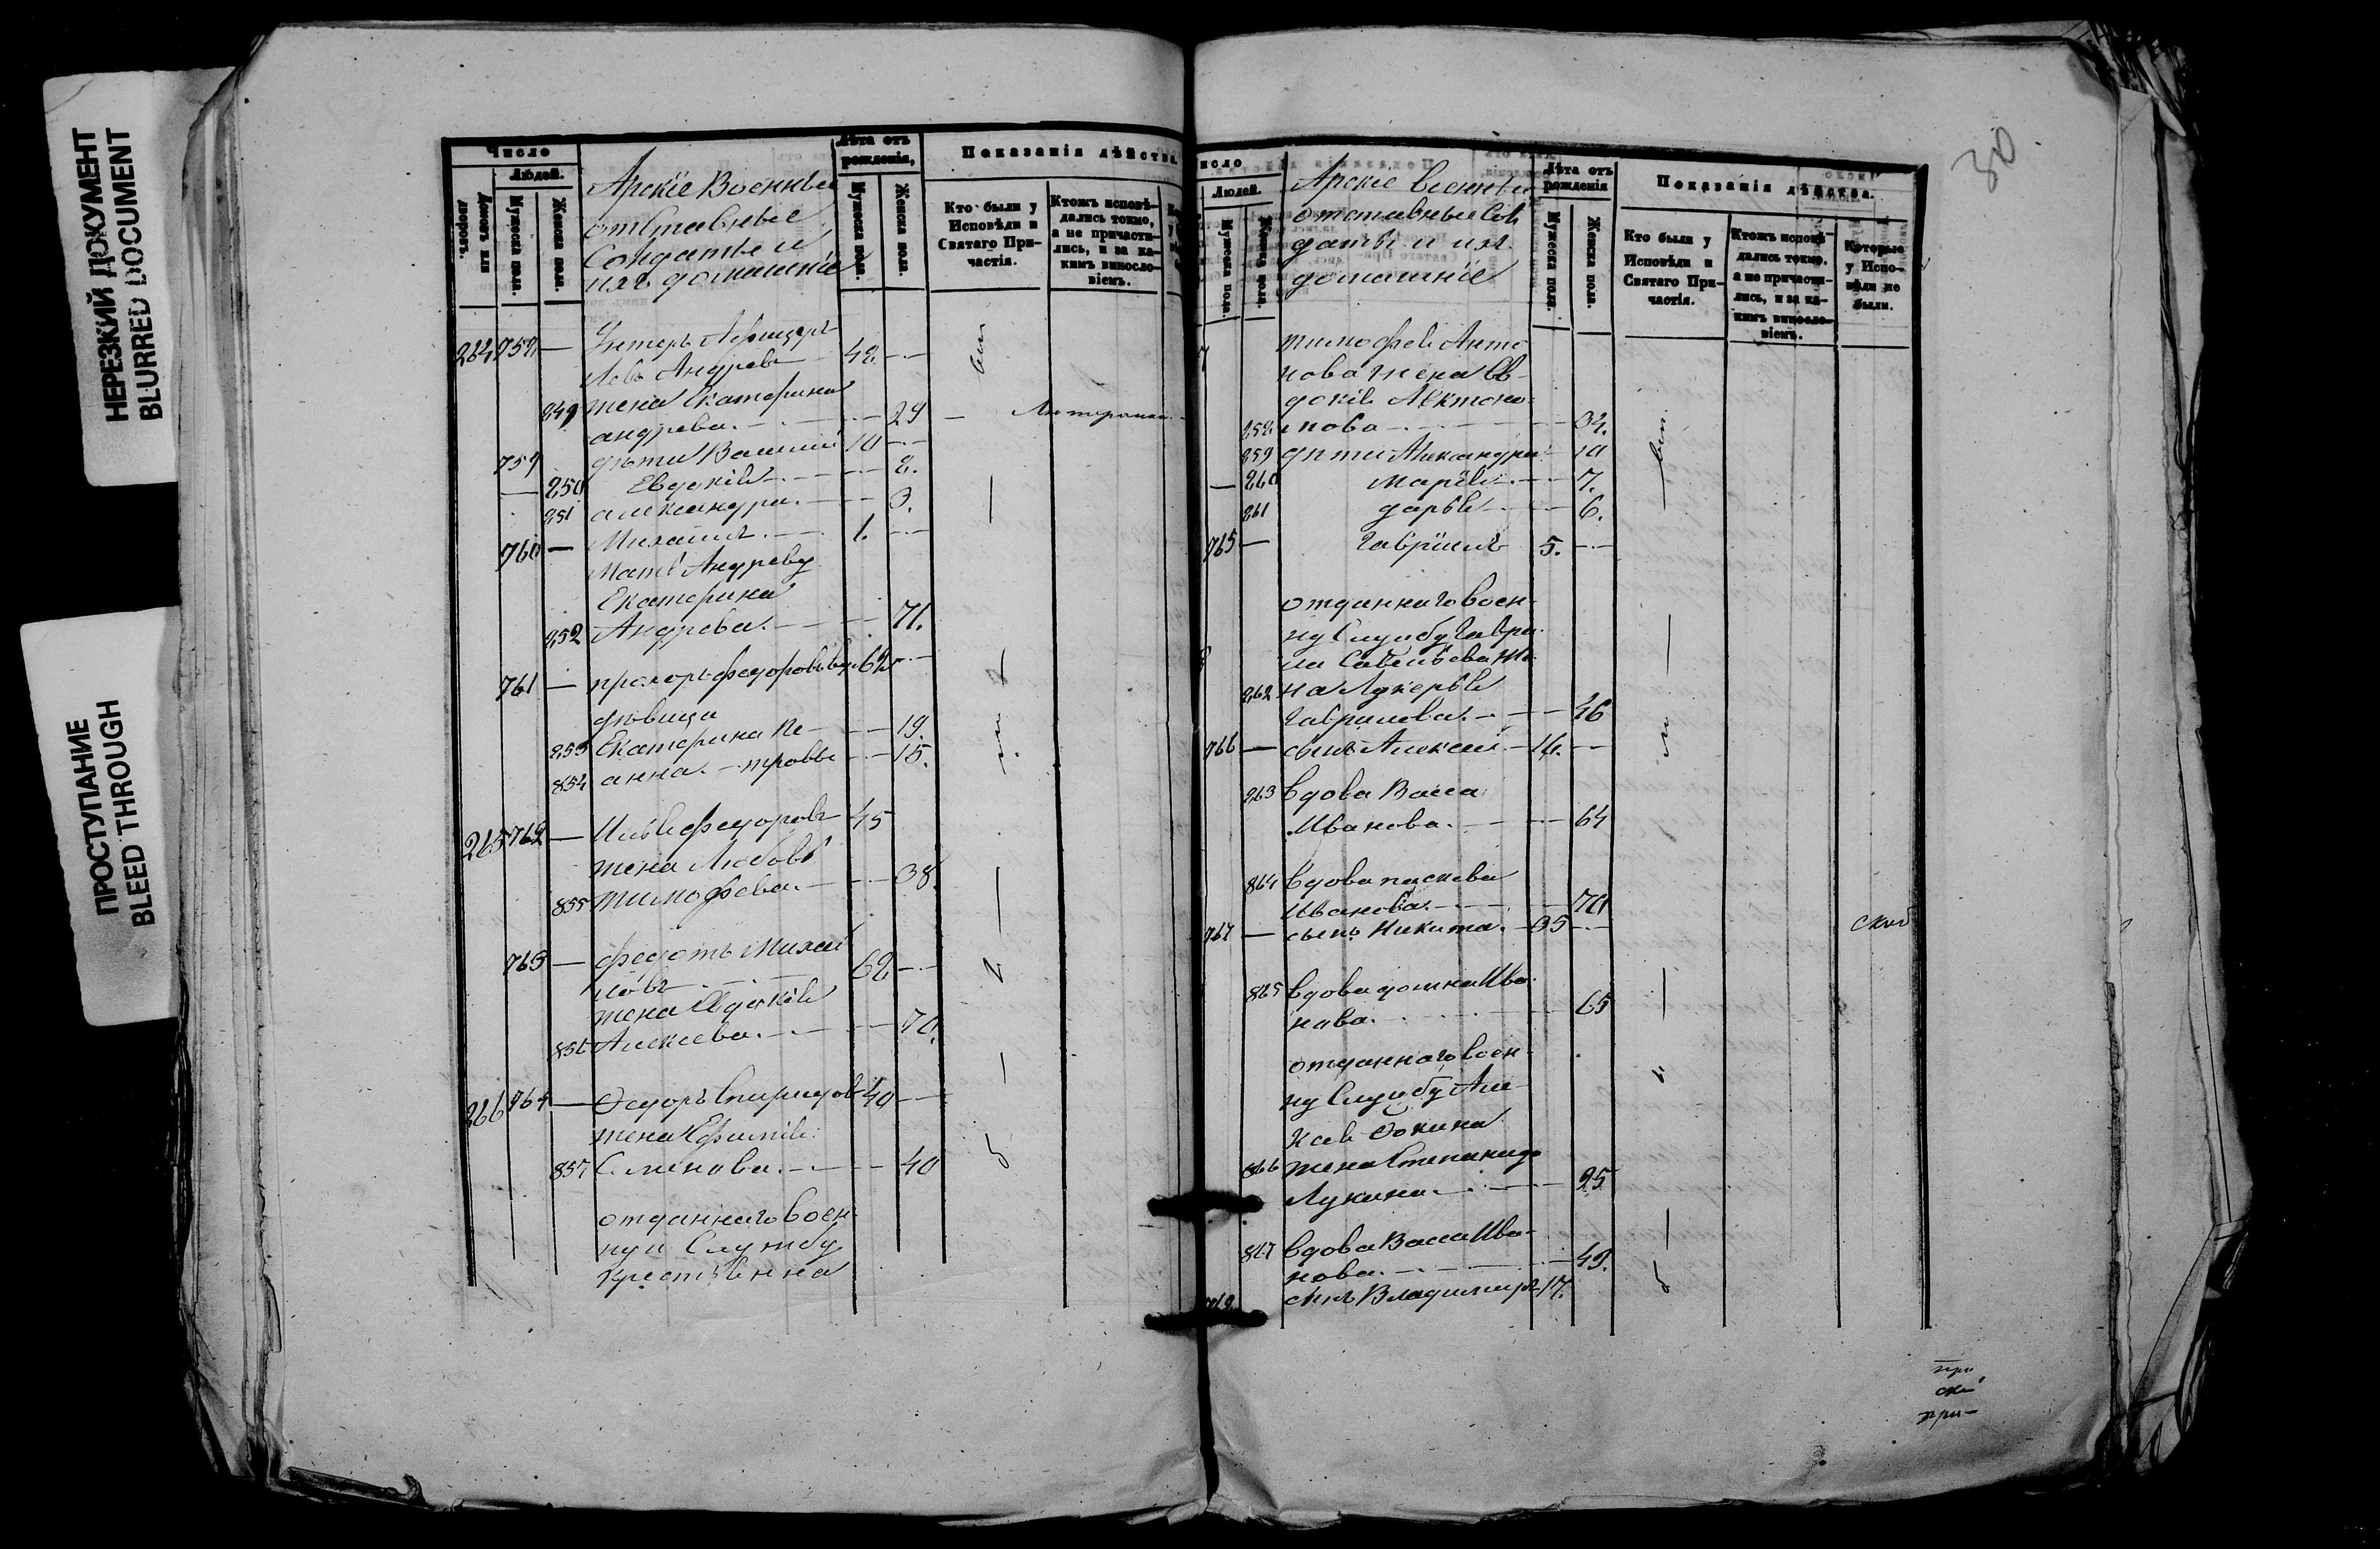 НЕРЕЗКИЙ ДОКУМЕНТ
BLURRED DOCUMENT
ПРОСТУПАНИЕ
BLEED THROUGH
Число
Людей.
Домовъ или дворовъ.
Мужеска пола.
Женска пола.
Арскіе Военные
отставные
Солдаты и
ихъ домашніе
Лѣта отъ рожденія,
Мужеска пола.
Женска пола.
Показанія дѣйства
Кто были у Исповѣди и Святаго Причастія.
Ктожъ исповѣдались токмо, а не причастились, и за какимъ винословіемъ.
264 758 — Унтеръ Афицеръ
Андреев 48
849 жена Екатерина
андрева. 29
759 дѣти Василий 10
— 850 Евдокія 8.
851 александра 3.
760 — Михаилъ 1.
Мать Андреву
Екатерина
852 Андрева. 71.
761 — прохоръ федоровъ
дѣвица
853 Екатерина Пе- 19.
854 анна. — тровы 15.
265 762 — Илья федоровъ 45
жена Любовь
855 тимофеева. 38.
763 — федотъ Михаи
ловъ 62
жена Евдокія
856 Алексеева. 70.
266 764 — Федоръ Спиридов 40
жена Ефимія
857 Семенова. 40
отданнаго воен-
ную Службу
крестьянина
30
исло
Людей.
Мужеска пола.
Женска пола.
Арскіе военные
отставные Сол
даты и ихъ
домашніе
Лѣта отъ рожденія
Мужеска пола.
Женска пола.
Показанія дѣйства.
Кто были у Исповѣди и Святаго Причастія.
Ктожъ исповѣдались токмо, а не причастились, и за какимъ винословіемъ.
Которые у Исповѣди не были.
7 тимофея Анто
нова жена Ев-
докія
858 34.
859 дѣти Александра 10
— 860 Марія 7.
861 дарья 6.
765 — Гавріилъ 5.
отданнаго воен-
ну Службу Гаври
ла Савельева же
862 на Лукерья
Гаврилова. 46
766 — сынъ Алексей 16.
863 вдова Васса
Иванова. 64
864 вдова
Иванова. 70
767 — сынъ Никита. 35
865 вдова домна Ива
нова. 65
отданнаго воен
ну Службу Але
ксея Фокина
866 жена Степанида
Лукина. 25
867 вдова Васса Ива-
нова. 49.
768 сынъ Владимиръ 17.
при
ска
при-